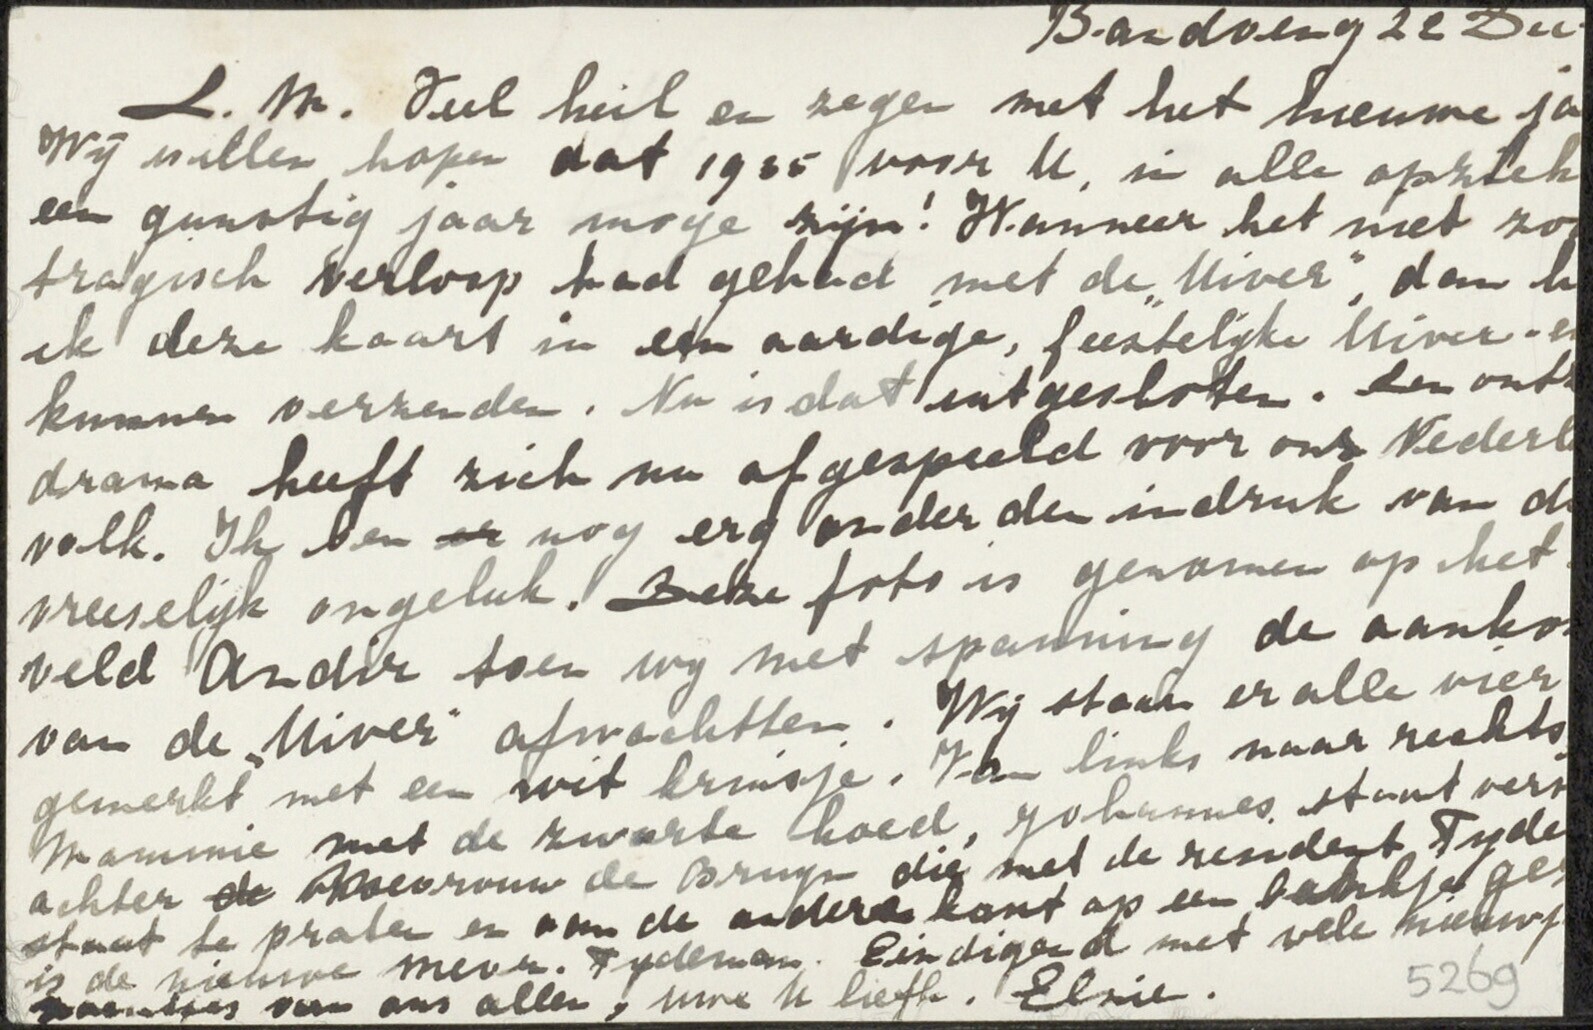 Bandoeng 22 Dec
L. M. Veel heil en zegen met het nieuwe ja
Wij willen hopen dat 1935 voor U, in alle opzich
een gunstig jaar moge zijn! Wanneer het niet zoo
tragisch verloop had gehad met de „Uiver", dan h
ik deze kaart in een aardige, feestelijke Uiver-en
kunnen verzenden. Nu is dat uitgesloten. Een ontz
drama heeft zich nu afgespeeld voor ons Nederl
volk. Ik ben er nog erg onder den indruk van di
vreeselijk ongeluk. Deze foto is genomen op het
veld Andir toen wij met spanning de aankom
van de „Uiver" afwachtten. Wij staan er alle vier
gemerkt met een wit kruisje. Van links naar rechts
Mammie met de zwarte hoed, Johannes staat vers
achter de Mevrouw de Bruyn die met de resident Tyde
staat te praten en aan de andere kant op een bankje gez
is de nieuwe mevr. Tydeman. Eindigend met vele nieuwj
van ons allen, uwe U liefh. Elsie.
5269